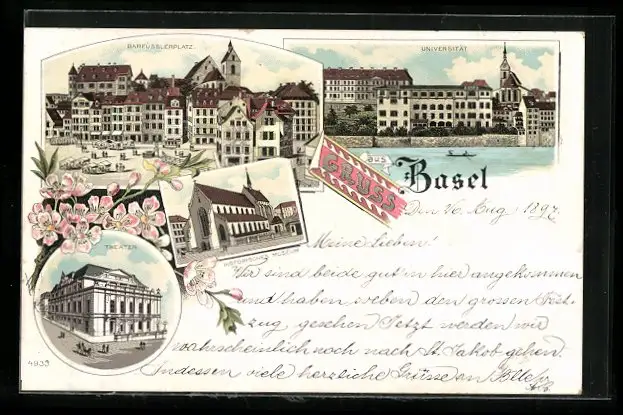 BARFÜSSLERPLATZ.
UNIVERSITÄT
GRUSS AUS Basel
Den 26 Aug. 1897
HISTORISCHES MUSEUM
Meine Lieben!
THEATER
Wir sind beide gut in hier angekommen
und haben soeben den grossen Fest-
zug gesehen Jetzt werden wir
wahrscheinlich noch nach St. Jakob gehen.
Indessen viele herzliche Grüsse an Alle
4933